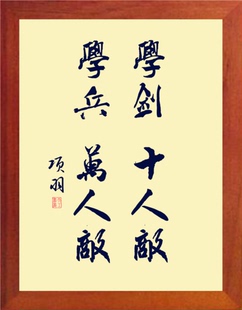 學劍 十人敵
學兵 萬人敵
項羽